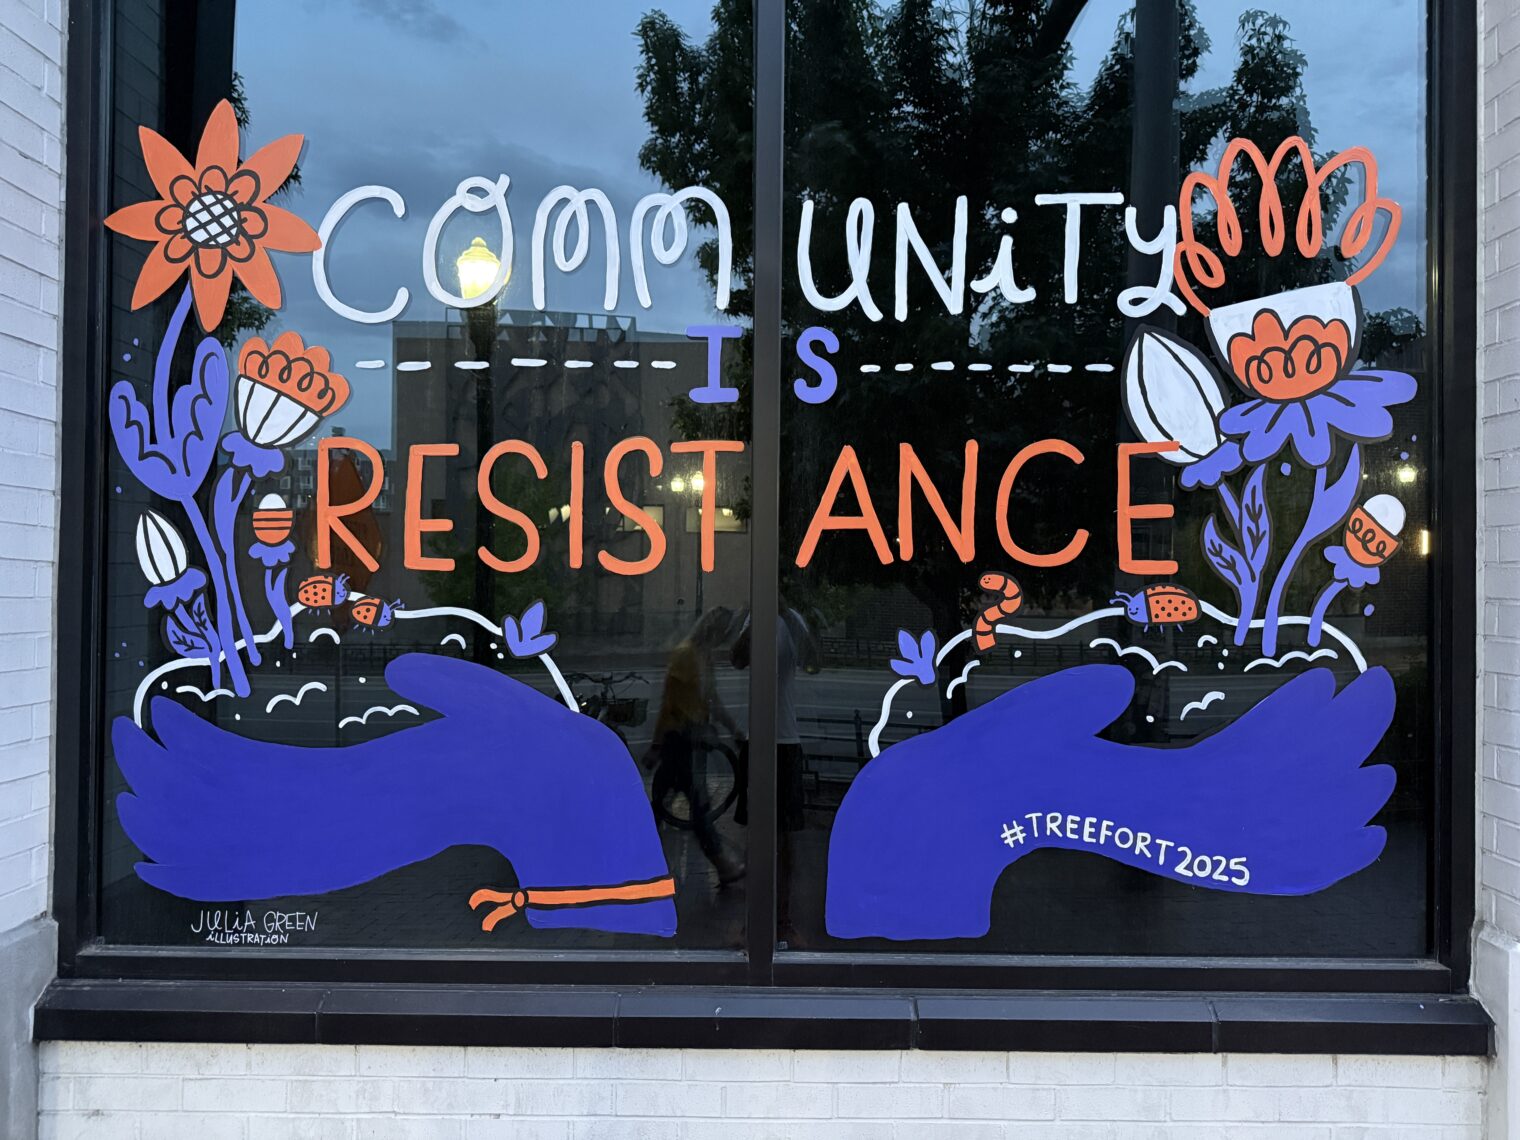 COMMUNiTY
IS
RESISTANCE
#TREEFORT2025
JULiA GREEN
iLLUSTRATiON